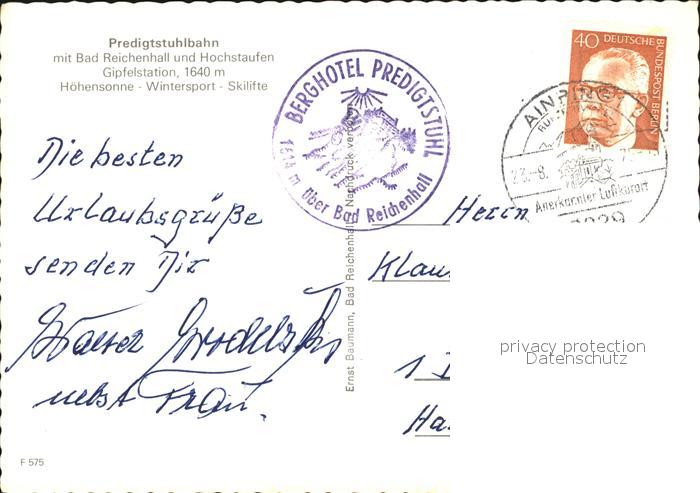 Predigtstuhlbahn
mit Bad Reichenhall und Hochstaufen
Gipfelstation, 1640 m
Höhensonne - Wintersport - Skilifte
BERGHOTEL PREDIGTSTUHL
1614 m über Bad Reichenhall
40 DEUTSCHE
BUNDESPOST BERLIN
AINRING
23.-8.
Anerkannter Luftkurort
Die besten
Urlaubsgrüße
senden Dir
Walter
nebst Frau.
Ernst Baumann, Bad Reichenhall Nachdruck verboten
Herrn
Klaus
1
privacy protection
Datenschutz
F 575